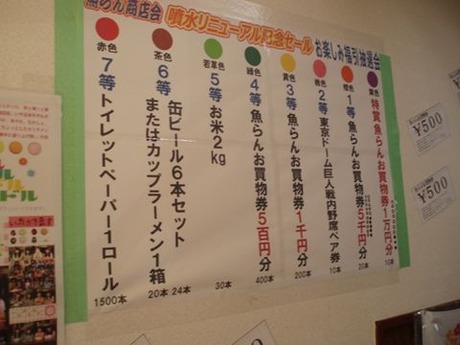 魚らん商店会 噴水リニューアル記念セール お楽しみ福引抽選会
紫色
特賞魚らんお買物券1万円分
10本
橙色
1等 魚らんお買物券5千円分
10本
桃色
2等 東京ドーム巨人戦内野席ペア券
10本
黄色
3等 魚らんお買物券1千円分
200本
緑色
4等 魚らんお買物券5百円分
400本
若草色
5等 お米2kg
30本
茶色
6等 缶ビール6本セット
またはカップラーメン1箱
20本 24本
赤色
7等 トイレットペーパー1ロール
1500本
¥500
¥500